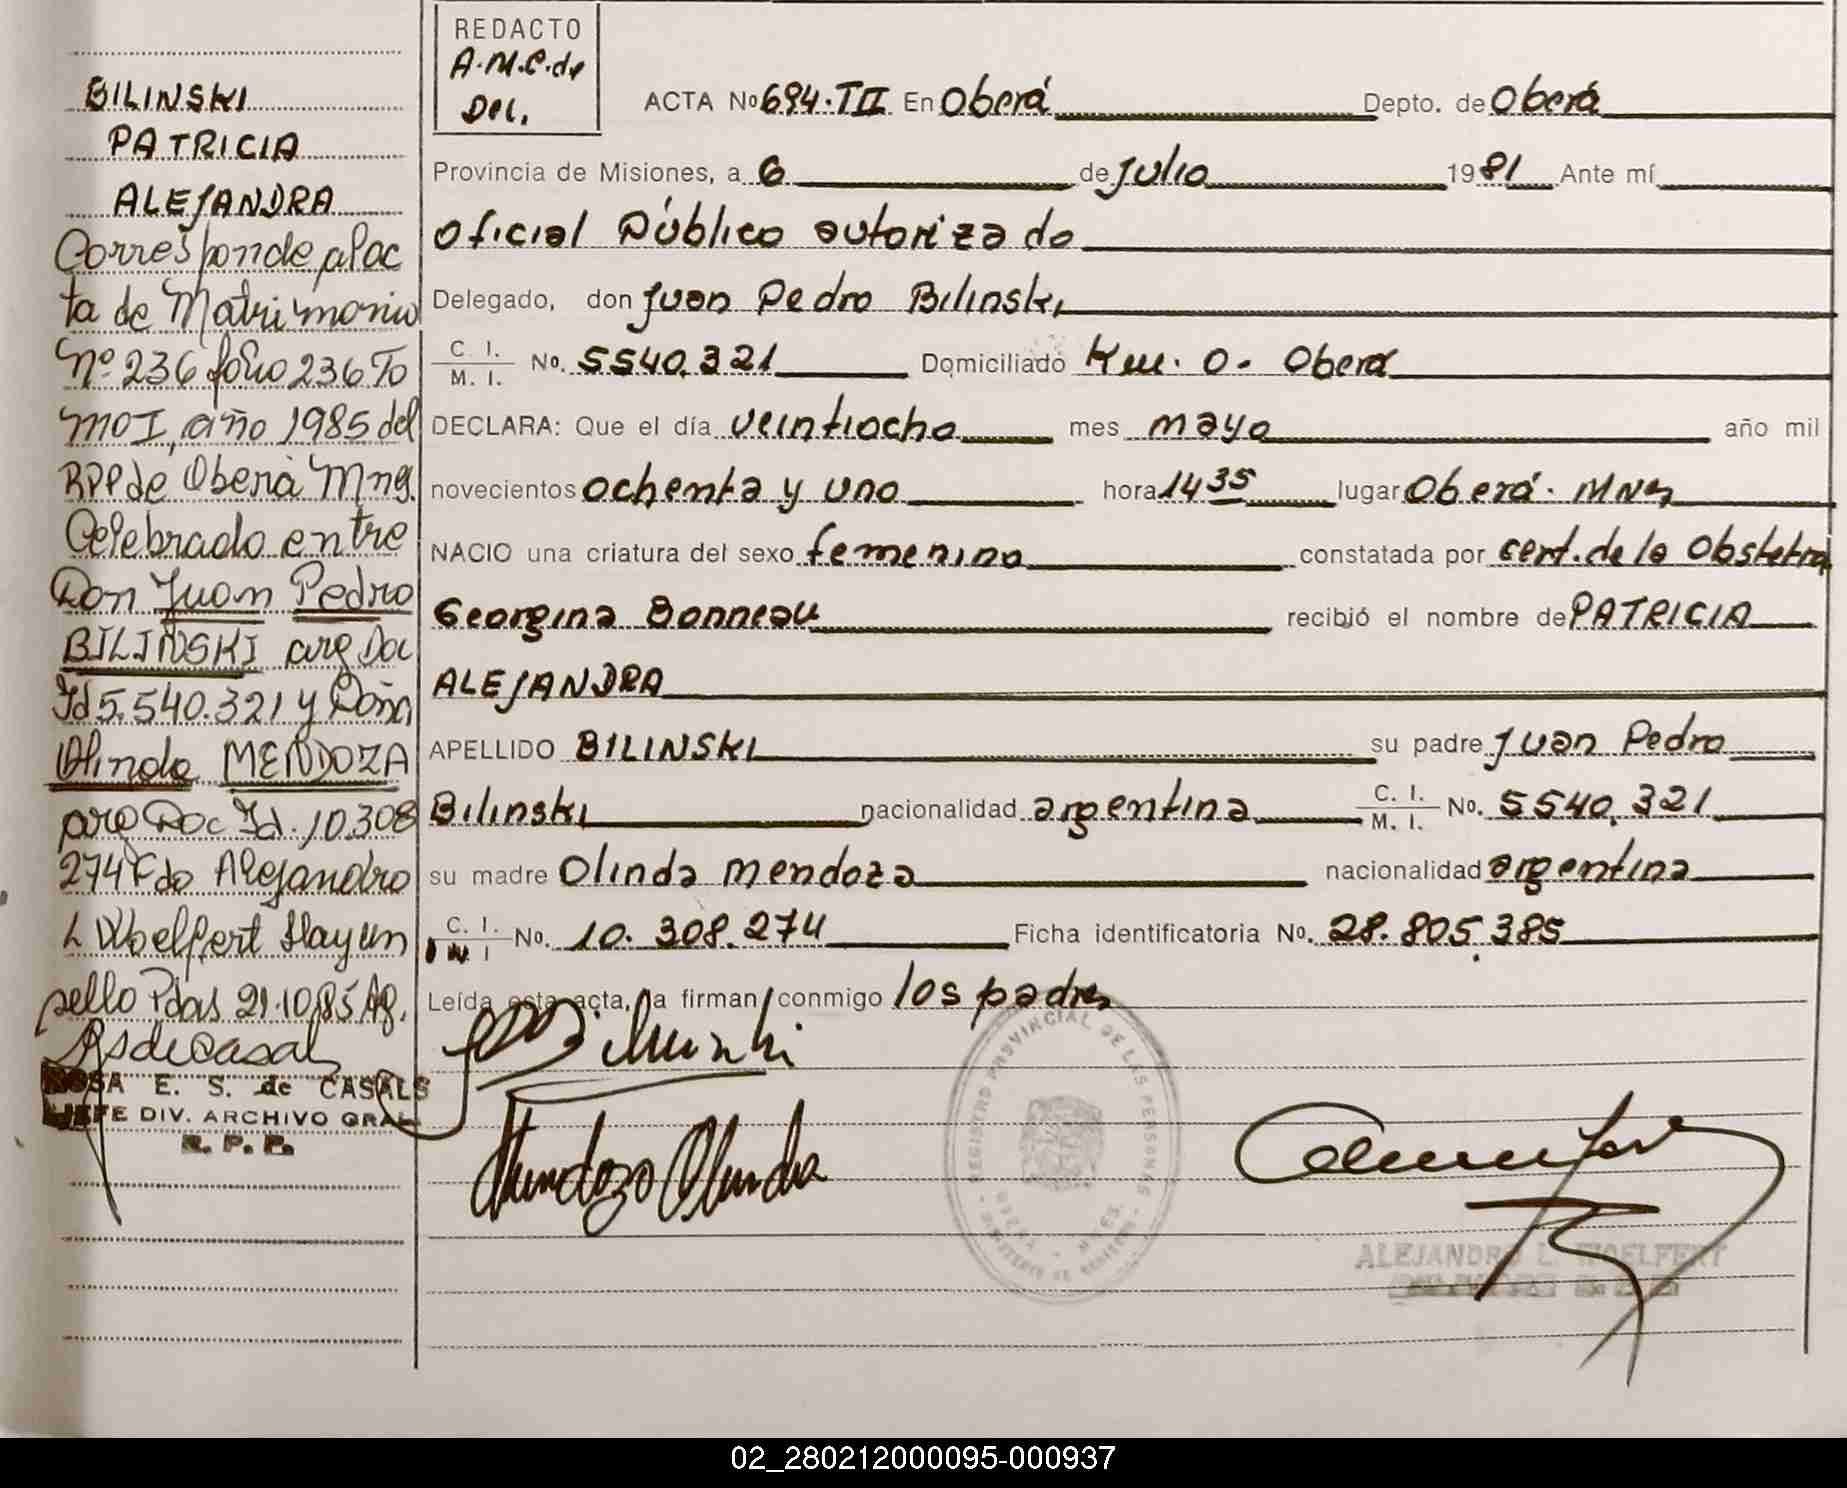 BILINSKI
PATRICIA
ALEJANDRA
Corresponde al ac
ta de Matrimonio
Nº 236 folio 236 To
mo I, año 1985 del
RPP de Oberá Mns.
Celebrado entre
Don Juan Pedro
BILINSKI arg Doc
Id 5.540.321 y Doña
Olinda MENDOZA
arg Doc Id. 10.308
274 Fdo Alejandro
L Woelfert Hay un
sello Pdas 21.10.85 Ag.
ROSA E. S. de CASALS
JEFE DIV. ARCHIVO GRAL
R. P. P.
REDACTO
A.M.C. de
Del.
ACTA No 694.TII En Oberá Depto. de Oberá
Provincia de Misiones, a 6 de Julio 1981 Ante mí
Oficial Público autorizado
Delegado, don Juan Pedro Bilinski
C. I. / M. I. No. 5540.321 Domiciliado Km. 0 - Oberá
DECLARA: Que el día veintiocho mes mayo año mil
novecientos ochenta y uno hora 14 35 lugar Oberá. MNS
NACIO una criatura del sexo femenino constatada por cert. de la Obstetra
Georgina Bonneau recibió el nombre de PATRICIA
ALEJANDRA
APELLIDO BILINSKI su padre Juan Pedro
Bilinski nacionalidad argentina C. I. / M. I. No. 5540.321
su madre Olinda Mendoza nacionalidad argentina
C. I. / M. I. No. 10.308.274 Ficha identificatoria No. 28.805.385
Leída esta acta, la firman conmigo los padres
Bilinski
Mendozo Olinda
REGISTRO PROVINCIAL DE LAS PERSONAS
ALEJANDRO L. WOELFERT
02_280212000095-000937